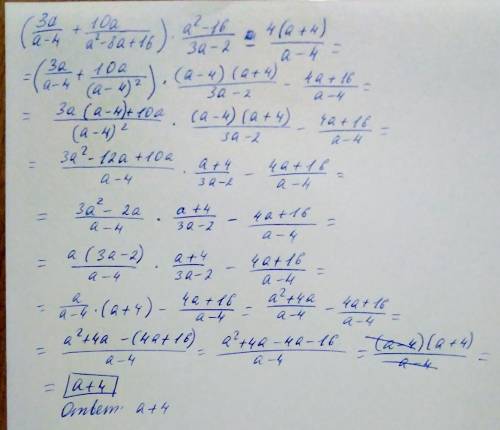 (3a/(a-4) + 10a/(a²-8a+16)) · (a²-16)/(3a-2) - 4(a+4)/(a-4) =
= (3a/(a-4) + 10a/(a-4)²) · (a-4)(a+4)/(3a-2) - (4a+16)/(a-4) =
= (3a(a-4)+10a)/(a-4)² · (a-4)(a+4)/(3a-2) - (4a+16)/(a-4) =
= (3a²-12a+10a)/(a-4) · (a+4)/(3a-2) - (4a+16)/(a-4) =
= (3a²-2a)/(a-4) · (a+4)/(3a-2) - (4a+16)/(a-4) =
= a(3a-2)/(a-4) · (a+4)/(3a-2) - (4a+16)/(a-4) =
= a/(a-4) · (a+4) - (4a+16)/(a-4) = (a²+4a)/(a-4) - (4a+16)/(a-4) =
= (a²+4a-(4a+16))/(a-4) = (a²+4a-4a-16)/(a-4) = (a-4)(a+4)/(a-4) =
= a+4
Ответ: a+4